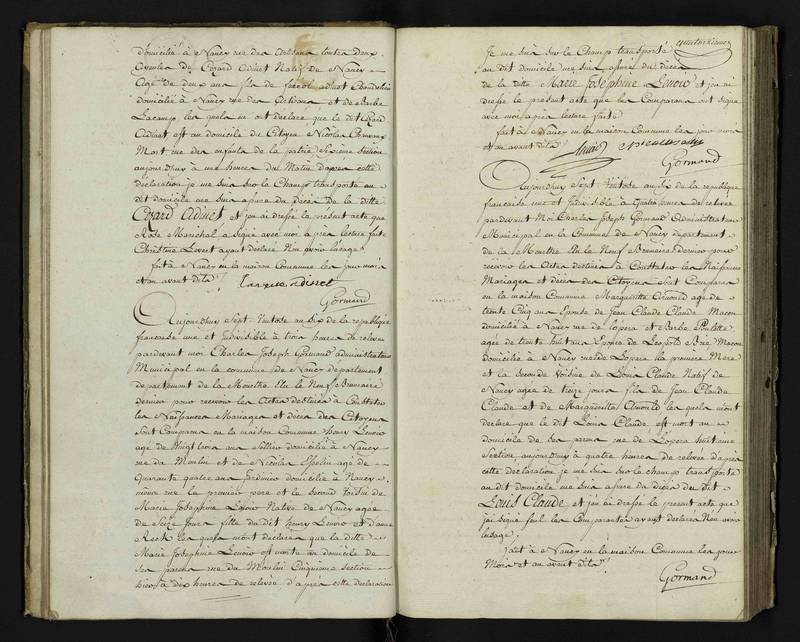 domicilié à Nancy rue des artisans toutes deux
de Cezard Adinet Natif de Nancy
Agé de deux ans fils de Adinet
domicilié à Nancy rue des Artisans et de Barbe
les quels m'ont declaré que le dit Cezard
Adinet est au domicile du Citoyen Nicolas
Mort rue des enfants de la patrie Sixième Section
aujourd'huy à une heure du Matin d'après cette
declaration je me suis sur le Champ transporté au
dit domicile me suis assuré du décès de la ditte
Cezard Adinet et j'ai dressé le présent acte que
Rose Maréchal a signé avec moi après lecture faite
Christine Levret ayant declaré Non avoir l'usage
fait à Nancy en la maison Commune les jour mois
et an avant dits
Gormand
Aujourd'huy Sept Ventose an Six de la republique
francaise une et Indivisible à trois heures de relevée
pardevant moi Charles Joseph Gormand administrateur
Municipal en la commune de Nancy departement
departement de la Meurthe Elu le Neuf Brumaire
dernier pour recevoir les Actes destinés à Constater
les Naissances Mariages et décès des Citoyens
Sont Comparus en la maison Commune henry Lenoir
agé de Vingt trois ans Sellier domicilié à Nancy
rue du Moulin et de Nicolas agé de
Quarante quatre ans Jardinier domicilié à Nancy
même rue le premier pere et le Second Voisin de
Marie Josephine Lenoir Native de Nancy agée
de Seize jours fille du dit henry Lenoir et d'anne
les quels m'ont declaré que la ditte
Marie Josephine Lenoir est morte au domicile de
ses parens rue du Moulin Cinquieme Section
à dix heures de relevée d'après cette declaration
Je me suis sur le Champ transporté
au dit domicile me suis assuré du décès
de la ditte Marie Josephine Lenoir et j'ai
dressé le présent acte que les Comparans ont Signé
avec moi après lecture faite
fait à Nancy en la maison Commune les jour mois
et an avant dits
Lenoir
Gormand
Aujourd'huy Sept Ventose an Six de la republique
francaise une et Indivisible à quatre heures de relevée
pardevant Moi Charles Joseph Gormand Administrateur
Municipal en la Commune de Nancy departement
de la Meurthe Elu le Neuf Brumaire dernier pour
recevoir les Actes destinés à Constater les Naissances
Mariages et décès des Citoyens Sont Comparus
en la maison Commune Marguerite Arnould agée de
trente Cinq ans Epouse de Jean Claude Claude Macon
domicilié à Nancy rue de l'opera et Barbe
agée de trente huit ans Epouse de Leopold Macon
domicilié à Nancy rue de L'opera la premiere Mere
et la seconde Voisine de Louis Claude Natif de
Nancy agé de treize jours fils de Jean Claude
Claude et de Marguerite Arnould les quels m'ont
declaré que le dit Louis Claude est mort au
domicile de ses parens rue de L'opera huitieme
Section aujourd'huy à quatre heures de relevée d'après
cette declaration je me suis sur le champ transporté
au dit domicile me suis assuré du décès du dit
Louis Claude et j'ai dressé le présent acte que
j'ai signé seul les Comparantes ayant declaré Non avoir
l'usage
fait à Nancy en la maison Commune les jour
Mois et an avant dits
Gormand